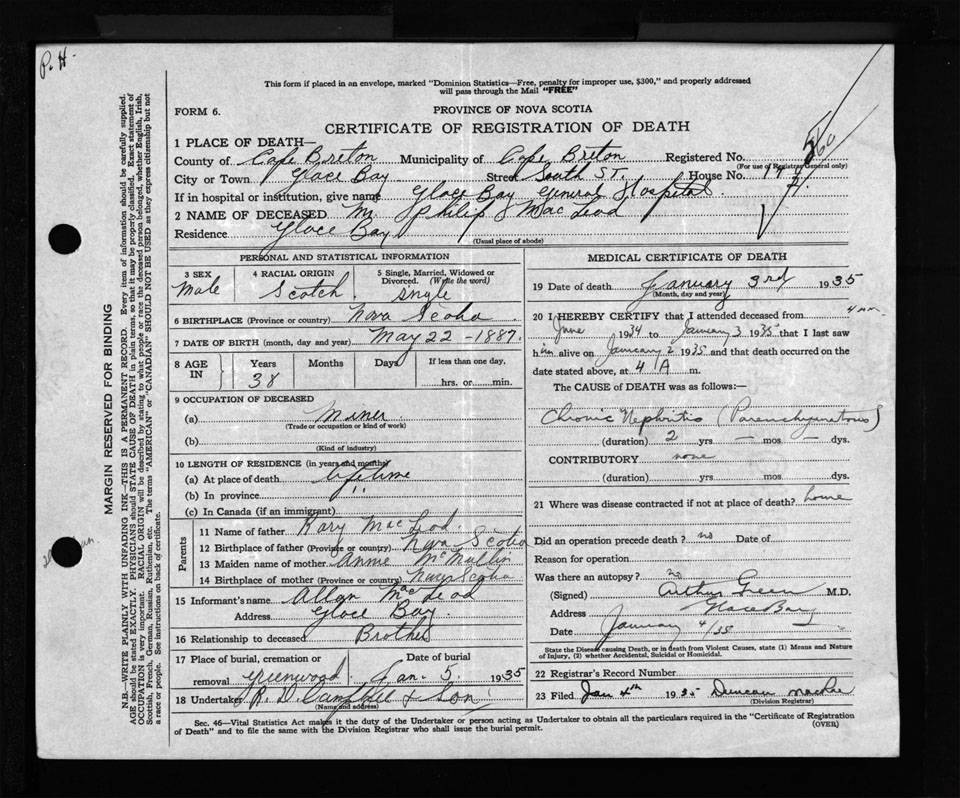 P. H.
This form if placed in an envelope, marked "Dominion Statistics—Free, penalty for improper use, $300," and properly addressed
will pass through the Mail "FREE"
FORM 6.
PROVINCE OF NOVA SCOTIA
CERTIFICATE OF REGISTRATION OF DEATH
1 PLACE OF DEATH—
County of Cape Breton Municipality of Cape Breton Registered No.
(For use of Registrar General only)
City or Town Glace Bay Street South St. House No.
If in hospital or institution, give name Glace Bay General Hospital
2 NAME OF DECEASED Mr. Philip J MacLeod
Residence Glace Bay
(Usual place of abode)
PERSONAL AND STATISTICAL INFORMATION
3 SEX Male
4 RACIAL ORIGIN Scotch
5 Single, Married, Widowed or Divorced. (Write the word) Single
6 BIRTHPLACE (Province or country) Nova Scotia
7 DATE OF BIRTH (month, day and year) May 22 - 1887.
8 AGE IN Years 38 Months Days If less than one day, hrs. or min.
9 OCCUPATION OF DECEASED
(a) Miner
(Trade or occupation or kind of work)
(b)
(Kind of industry)
10 LENGTH OF RESIDENCE (in years and months)
(a) At place of death lifetime
(b) In province "
(c) In Canada (if an immigrant)
Parents
11 Name of father Rory MacLeod.
12 Birthplace of father (Province or country) Nova Scotia
13 Maiden name of mother Annie McMullin
14 Birthplace of mother (Province or country) Nova Scotia
15 Informant's name Allan McLeod
Address Glace Bay
16 Relationship to deceased Brother
17 Place of burial, cremation or removal Greenwood Date of burial Jan. 5 1935
18 Undertaker R. D. Campbell & Son
(Name and address)
MEDICAL CERTIFICATE OF DEATH
19 Date of death January 3rd 1935
(Month, day and year)
20 I HEREBY CERTIFY that I attended deceased from
June 1934 to January 3 1935 that I last saw
him alive on January 2 1935 and that death occurred on the
date stated above, at 4 A m.
The CAUSE OF DEATH was as follows:—
Chronic Nephritis (Parenchymatous)
(duration) 2 yrs — mos — dys.
CONTRIBUTORY none
(duration) yrs. mos. dys.
21 Where was disease contracted if not at place of death? home
Did an operation precede death? no Date of
Reason for operation
Was there an autopsy? no
(Signed) Arthur Green M.D.
Address Glace Bay
Date January 4/35
State the Disease causing Death, or in death from Violent Causes, state (1) Means and Nature
of Injury, (2) whether Accidental, Suicidal or Homicidal.
22 Registrar's Record Number
23 Filed Jan 4th 1935 Duncan MacRae
(Division Registrar)
Sec. 46—Vital Statistics Act makes it the duty of the Undertaker or person acting as Undertaker to obtain all the particulars required in the "Certificate of Registration
of Death" and to file the same with the Division Registrar who shall issue the burial permit.
(OVER)
MARGIN RESERVED FOR BINDING
N.B.—WRITE PLAINLY WITH UNFADING INK—THIS IS A PERMANENT RECORD. Every item of information should be carefully supplied.
AGE should be stated EXACTLY. PHYSICIANS should STATE CAUSE OF DEATH in plain terms, so that it may be properly classified. Exact statement of
OCCUPATION is very important. RACIAL ORIGIN will be described by stating to what people or race the deceased person belonged, whether English, Irish,
Scottish, French, German, Russian, Ruthenian, etc. The terms "AMERICAN" or "CANADIAN" SHOULD NOT BE USED as they express citizenship but not
a race or people. See instructions on back of certificate.